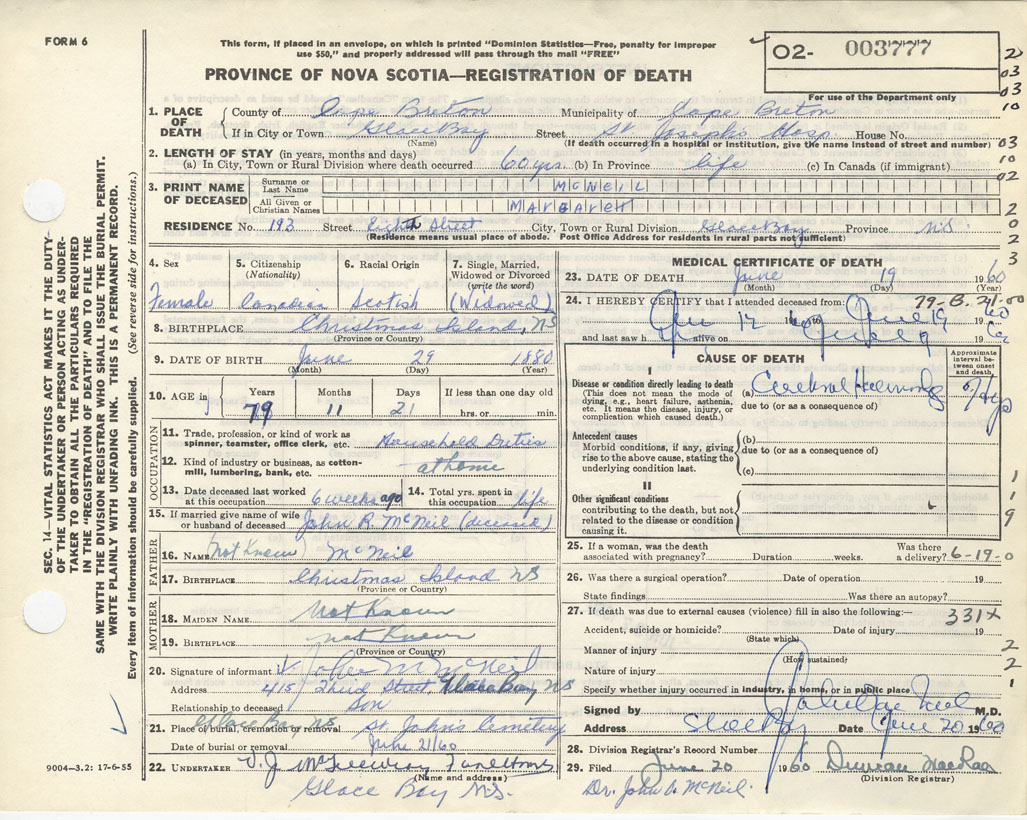 FORM 6
This form, if placed in an envelope, on which is printed "Dominion Statistics—Free, penalty for improper
use $50," and properly addressed will pass through the mail "FREE"
PROVINCE OF NOVA SCOTIA—REGISTRATION OF DEATH
O2- 003777
For use of the Department only
2
03
03
10
03
10
02
2
0
2
3
1. PLACE OF DEATH County of Cape Breton Municipality of Cape Breton
If in City or Town Glace Bay Street St Joseph's Hosp. House No.
(Name) (If death occurred in a hospital or institution, give the name instead of street and number)
2. LENGTH OF STAY (in years, months and days)
(a) In City, Town or Rural Division where death occurred 60 yrs. (b) In Province life (c) In Canada (if immigrant)
3. PRINT NAME OF DECEASED
Surname or Last Name McNEIL
All Given or Christian Names MARGARET
RESIDENCE No. 193 Street Eighth Street City, Town or Rural Division Glace Bay Province N.S.
(Residence means usual place of abode. Post Office Address for residents in rural parts not sufficient)
4. Sex
Female
5. Citizenship
(Nationality)
Canadian
6. Racial Origin
Scotish
7. Single, Married,
Widowed or Divorced
(write the word)
(Widowed)
8. BIRTHPLACE Christmas Island, NS
(Province or Country)
9. DATE OF BIRTH June 29 1880
(Month) (Day) (Year)
10. AGE in
Years Months Days If less than one day old
79 11 21 hrs. or min.
OCCUPATION
11. Trade, profession, or kind of work as
spinner, teamster, office clerk, etc. Household Duties
12. Kind of industry or business, as cotton-
mill, lumbering, bank, etc. at home
13. Date deceased last worked
at this occupation 6 weeks ago
14. Total yrs. spent in
this occupation life
15. If married give name of wife
or husband of deceased John R. McNeil (deceased)
FATHER
16. NAME Not Known McNeil
17. BIRTHPLACE Christmas Island NS
(Province or Country)
MOTHER
18. MAIDEN NAME Not Known
19. BIRTHPLACE not Known
(Province or Country)
20. Signature of informant John M McNeil
Address 415 Third Street, Glace Bay NS
Relationship to deceased Son
21. Place of burial, cremation or removal Glace Bay NS St John's Cemetery
Date of burial or removal June 21/60
22. UNDERTAKER V. J. McGillivray Funeral Home
(Name and address)
Glace Bay N.S.
MEDICAL CERTIFICATE OF DEATH
23. DATE OF DEATH June 19 1960
(Month) (Day) (Year)
24. I HEREBY CERTIFY that I attended deceased from:
79-B. 21-00
to June 19 19 60
and last saw h alive on 19
CAUSE OF DEATH
Approximate interval between onset and death
I
Disease or condition directly leading to death
(This does not mean the mode of
dying, e.g., heart failure, asthenia,
etc. It means the disease, injury, or
complication which caused death.)
(a) Cerebral
due to (or as a consequence of)
Antecedent causes
Morbid conditions, if any, giving
rise to the above cause, stating the
underlying condition last.
(b)
due to (or as a consequence of)
(c)
II
Other significant conditions
contributing to the death, but not
related to the disease or condition
causing it.
1
1
9
25. If a woman, was the death
associated with pregnancy? Duration weeks. Was there
a delivery? 6-19-0
26. Was there a surgical operation? Date of operation 19
State findings Was there an autopsy?
27. If death was due to external causes (violence) fill in also the following:— 331x
Accident, suicide or homicide? Date of injury 19
(State which)
Manner of injury 2
(How sustained)
Nature of injury 2
Specify whether injury occurred in industry, in home, or in public place 1
Signed by M.D.
Address Glace Bay June 20 1960
28. Division Registrar's Record Number
29. Filed June 20 1960 Duncan MacRae
(Division Registrar)
Dr. John A. McNeil.
SEC. 14—VITAL STATISTICS ACT MAKES IT THE DUTY
OF THE UNDERTAKER OR PERSON ACTING AS UNDER-
TAKER TO OBTAIN ALL THE PARTICULARS REQUIRED
IN THE "REGISTRATION OF DEATH" AND TO FILE THE
SAME WITH THE DIVISION REGISTRAR WHO SHALL ISSUE THE BURIAL PERMIT.
WRITE PLAINLY WITH UNFADING INK. THIS IS A PERMANENT RECORD.
Every item of information should be carefully supplied. (See reverse side for instructions.)
9004—3.2: 17-6-55